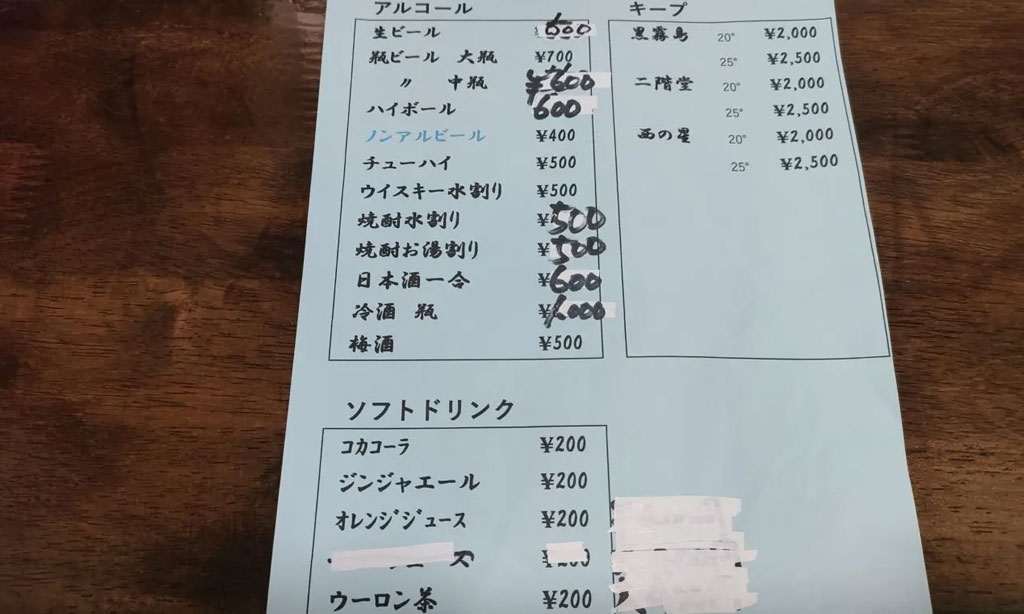 アルコール
生ビール 600
瓶ビール 大瓶 ¥700
〃 中瓶 ¥600
ハイボール 600
ノンアルビール ¥400
チューハイ ¥500
ウイスキー水割り ¥500
焼酎水割り ¥500
焼酎お湯割り ¥500
日本酒一合 ¥600
冷酒 瓶 ¥1,000
梅酒 ¥500
キープ
黒霧島 20° ¥2,000
25° ¥2,500
二階堂 20° ¥2,000
25° ¥2,500
西の星 20° ¥2,000
25° ¥2,500
ソフトドリンク
コカコーラ ¥200
ジンジャエール ¥200
オレンジジュース ¥200
ウーロン茶 ¥200